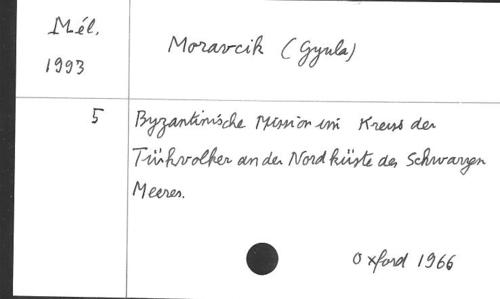 Mél.
1993
Moravcik (Gyula)
5
Byzantinische Mission im Kreis der
Türkvolker an der Nordküste des Schwarzen
Meeres.
Oxford 1966